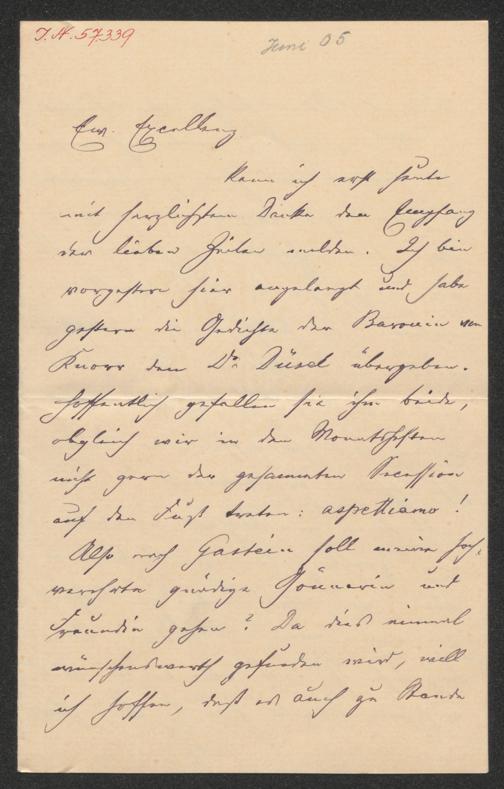 I.N. 57.339
Juni 05
Ew. Excellenz
kann ich erst heute
mit herzlichstem Danke den Empfang
der lieben Zeilen melden. Ich bin
vorgestern hier angelangt und habe
gestern die Gedichte der Baronin von
Knorr dem Dr. Düsel übergeben.
Hoffentlich gefallen sie ihm beide,
obgleich wir in den Monatsheften
nicht gern der gesammten Secession
auf den Fuß treten: aspettiamo!
Also nach Gastein soll meine hoch-
verehrte gnädige Gönnerin und
Freundin gehen? Da dies einmal
wünschenswerth gefunden wird, will
ich hoffen, daß es auch zu Stande